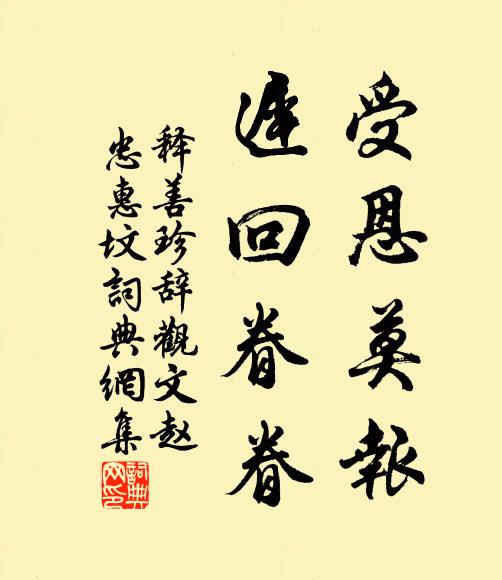 受恩莫報
遲回眷眷
释善珍辞觀文赵
忠惠坟詞典網集
詞典网印